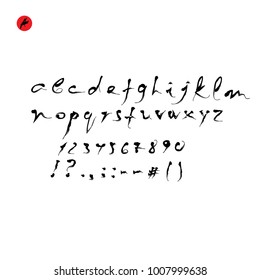 abcdefghijklm
nopqrstuvwxyz
1234567890
!?.,;:--#()
shutterstock.com · 1007999638